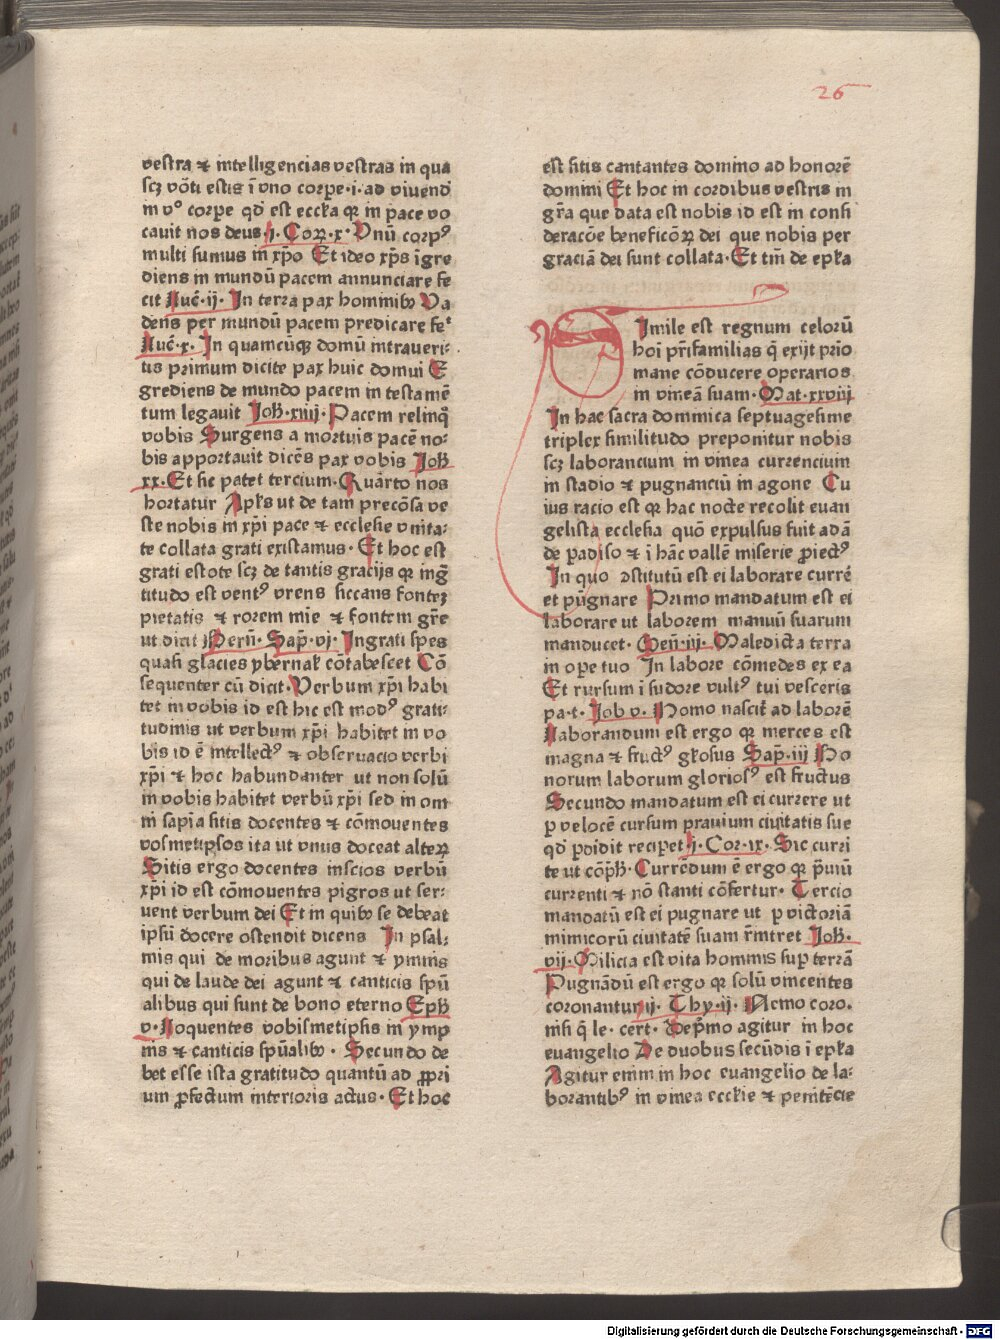 26
vestra ⁊ intelligencias vestras in qua
scꝫ vōti estis ī vno corpe·i·ad viuend̄
in vº corpe qd̄ est eccƚia qꝛ in pace vo
cauit nos deus·j·Coꝝ·x·Vnū corpꝰ
multi sumus in xp̄o Et ideo xp̄s īgre
diens in mundū pacem annunciare fe
cit Luc̄·ij·In terra pax hominibꝫ Va
dens per mundū pacem predicare feᵗ
Luc̄·x·In quamcūqꝫ domū intraueri-
tis primum dicite pax huic domui E
grediens de mundo pacem in testamē
tum legauit Joh̄·xiiij·Pacem relinq̄
vobis Surgens a mortuis pacē no-
bis apportauit dicēs pax vobis Joh̄
xx·Et sic patet tercium·Quarto nos
hortatur Apƚs ut de tam precōsa ve
ste nobis in xp̄i pace ⁊ ecclesie vnita-
te collata grati existamus·Et hoc est
grati estote scꝫ de tantis gracijs qꝛ ingᷓ
titudo est ventꝰ vrens siccans fontez
pietatis ⁊ rorem mīe ⁊ fontem grē
ut dicit Berñ·Sap̄·vj·Ingrati spes
quasi glacies ybernaƚ cōtabescet Cō
sequenter cū dicit·Verbum xp̄i habi
tet in vobis id est hic est modꝰ grati-
tudinis ut verbum xp̄i habitet in vo
bis id ē intellectꝰ ⁊ obseruacio verbi
xp̄i ⁊ hoc habundanter ut non solū
in vobis habitet verbū xp̄i sed in om
ni sapīa sitis docentes ⁊ cōmouentes
vosmetip̄sos ita ut vnus doceat alterꝝ
Sitis ergo docentes inscios verbū
xp̄i id est cōmouentes pigros ut ser-
uent verbum dei Et in quibꝫ se debeat
ip̄si docere ostendit dicens In psal-
mis qui de moribus agunt ⁊ ymnis
qui de laude dei agunt ⁊ canticis sp̄ū
alibus qui sunt de bono eterno Eph̄
v·Loquentes vobismetipsis in ymp
nis ⁊ canticis sp̄ualibꝫ·Secundo de
bet esse ista gratitudo quantū ad ꝓpri
um ꝓfectum interioris actus·Et hoc
est sitis cantantes domino ad honorē
domini Et hoc in cordibus vestris in
gr̄a que data est nobis id est in consi
deracōe beneficōꝝ dei que nobis per
graciā dei sunt collata·Et tm̄ de epƚa
Simile est regnum celorū
hoī pr̄ifamilias q̄ exijt prīo
mane cōducere operarios
in vineā suam·Mat·xxviij
In hac sacra dominica septuagesime
triplex similitudo preponitur nobis
scꝫ laborancium in vinea currencium
in stadio ⁊ pugnanciū in agone Cu
ius racio est qꝛ hac nocte recolit euan
gelista ecclesia quō expulsus fuit adā
de padiso ⁊ ī hāc vallē miserie ꝓiectꝰ
In quo ↄstitutū est ei laborare currē
et pūgnare Primo mandatum est ei
laborare ut laborem manuū suarum
manducet·Geñ·iij·Maledicta terra
in oꝑe tuo In labore cōmedes ex ea
Et rursum ī sudore vultꝰ tui vesceris
pa·t·Job v·Homo nascit̄ ad laborē
Laborandum est ergo qꝛ merces est
magna ⁊ fructꝰ gƚosus Sap̄·iij Bo
norum laborum gloriosꝰ est fructus
Secundo mandatum est ei currere ut
ꝑ velocē cursum prauium ciuitatis sue
qd̄ ꝑdidit recipet j·Cor·ix·Sic curri
te ut cōp̄h̄·Currēdum ē ergo qꝛ p̄uiū
currenti ⁊ nō stanti cōfertur·Tercio
mandatū est ei pugnare ut ꝑ victoriā
inimicorū ciuitatē suam r̄intret Job·
vij·Milicia est vita hominis suꝑ terrā
Pugnādū est ergo qꝛ solū vincentes
coronantur ij·Thy·ij·Nemo coro·
nisi q̄ le·cert·De pͥmo agitur in hoc
euangelio De duobus secūdis ī epƚa
Agitur enim in hoc euangelio de la-
borantibꝰ in vinea eccƚie ⁊ penitēcie
Digitalisierung gefördert durch die Deutsche Forschungsgemeinschaft · DFG